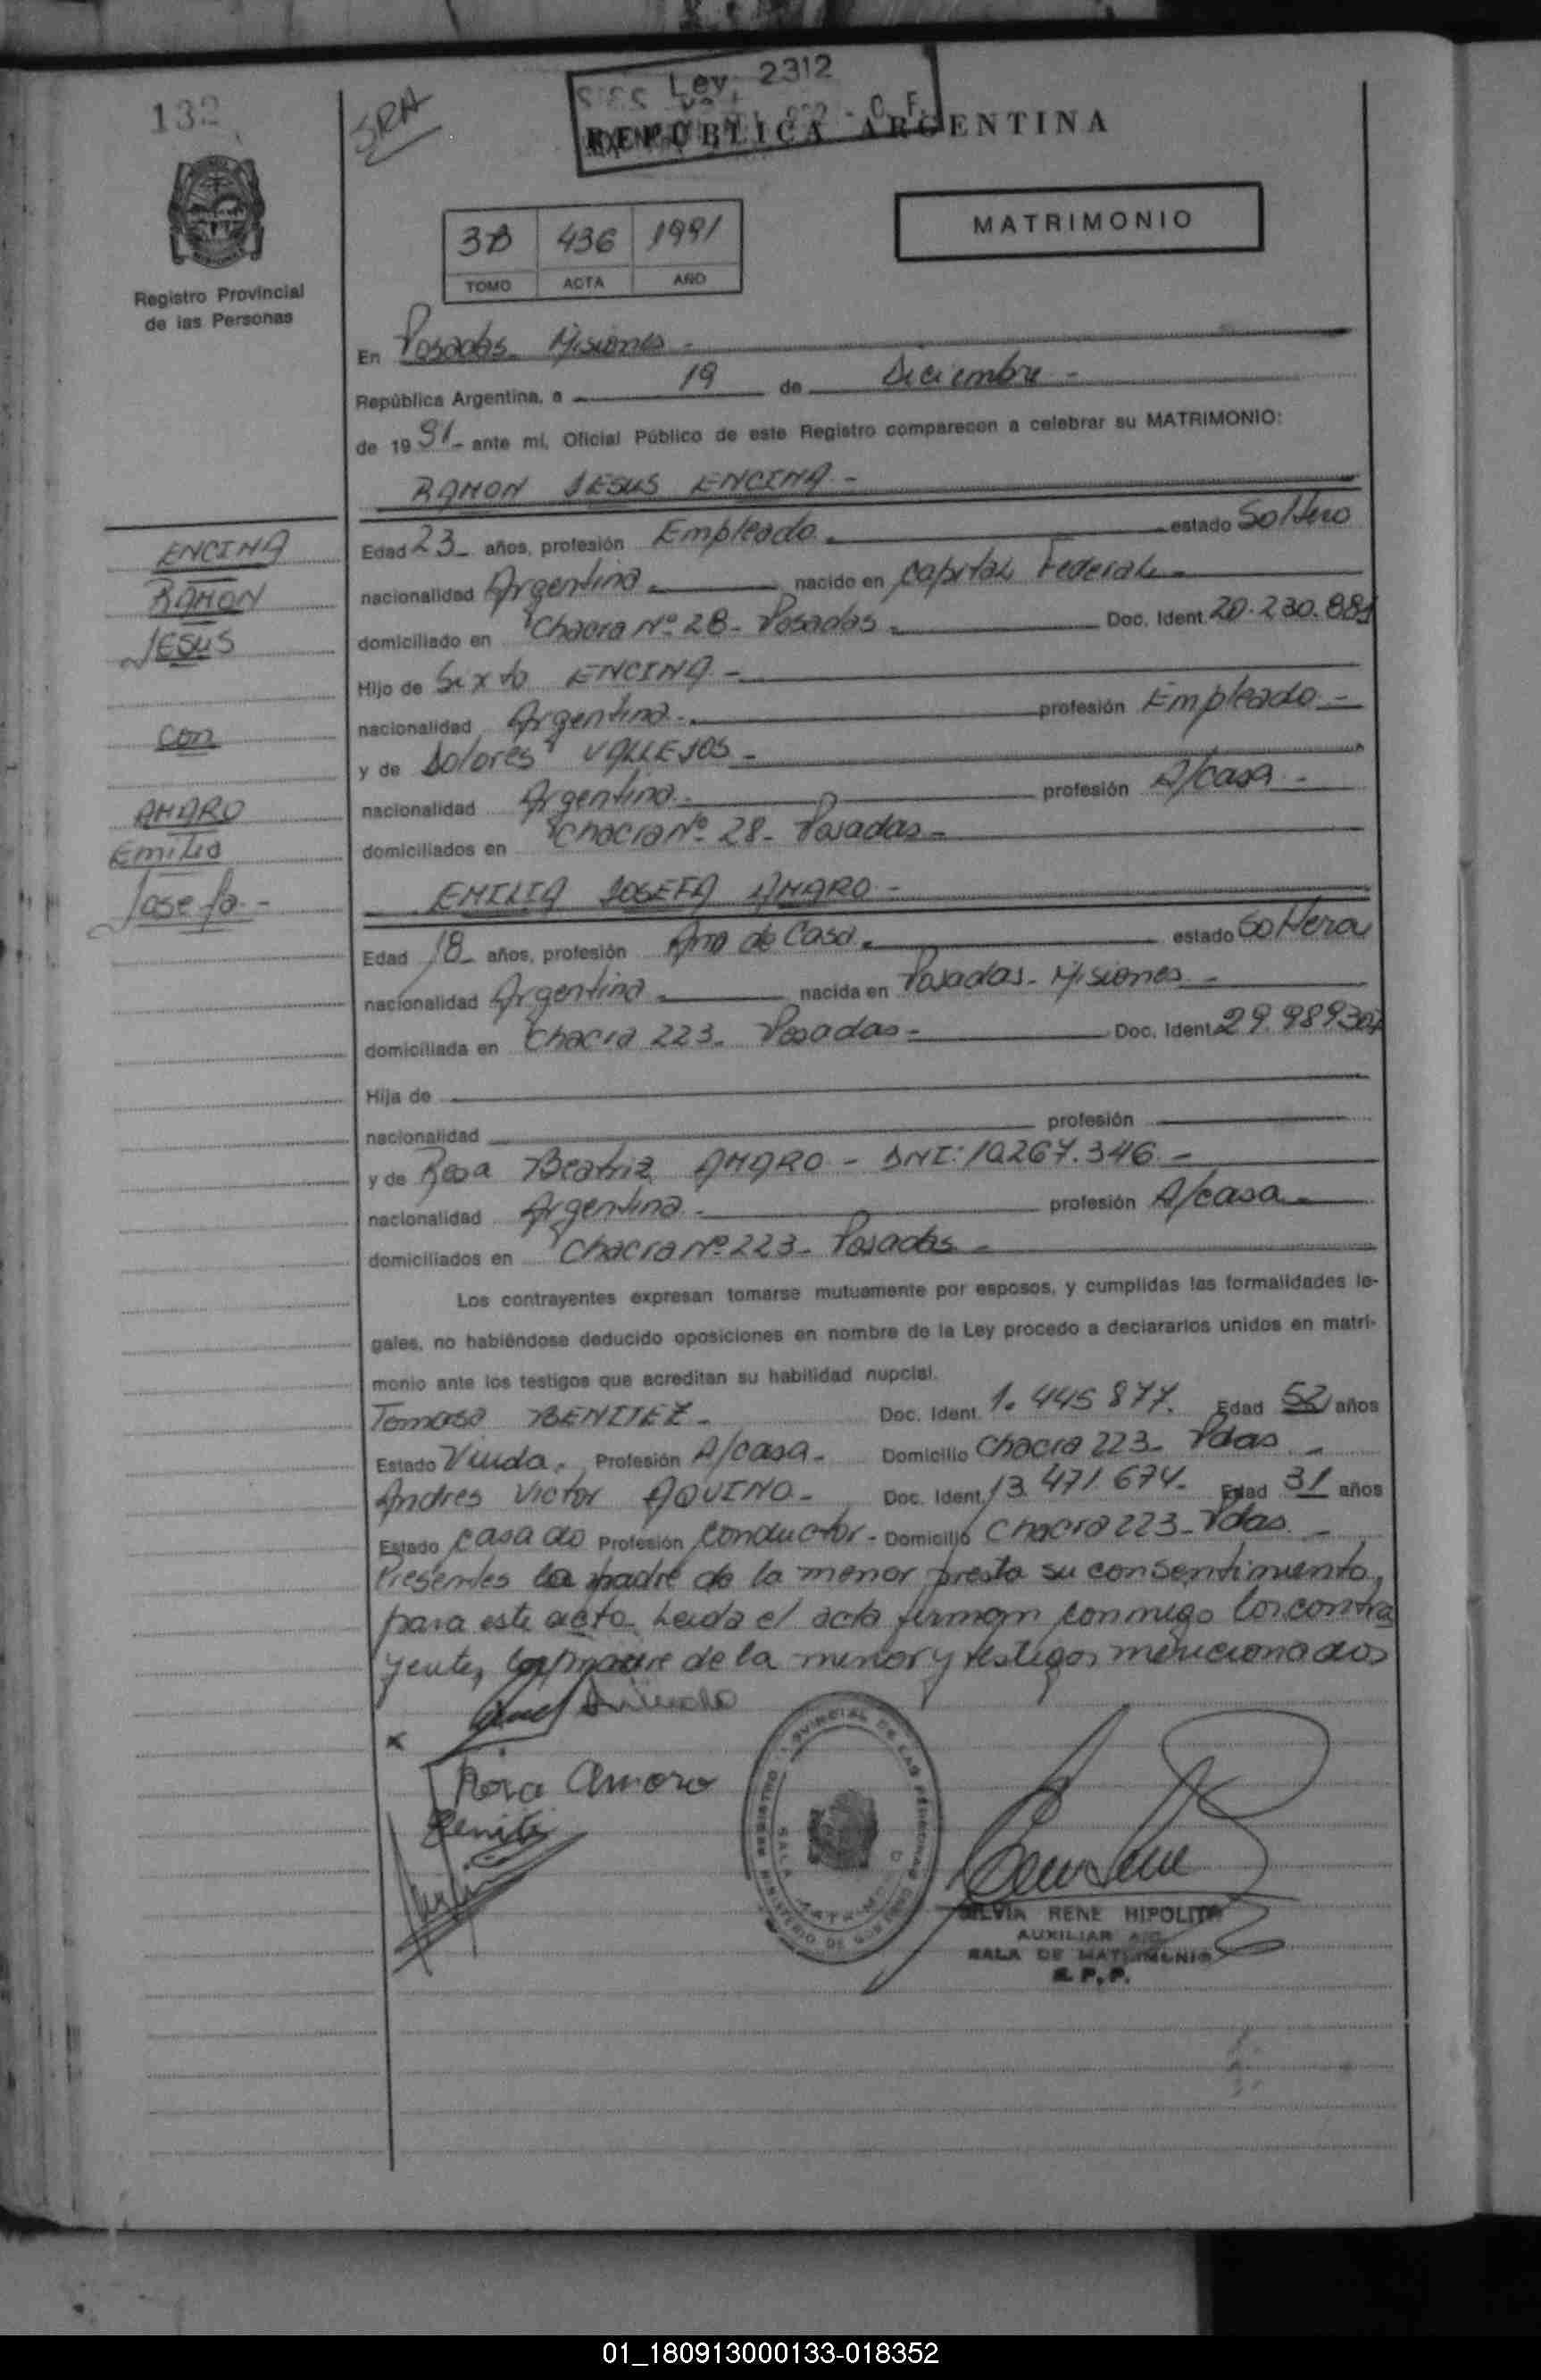 132
SRA
Ley 2312
REPUBLICA ARGENTINA
3B 436 1991
TOMO ACTA AÑO
MATRIMONIO
Registro Provincial
de las Personas
En Posadas - Misiones -
República Argentina, a 19 de Diciembre -
de 1991 - ante mí, Oficial Público de este Registro comparecen a celebrar su MATRIMONIO:
RAMON JESUS ENCINA -
Edad 23 - años, profesión Empleado. estado Soltero
nacionalidad Argentina. nacido en Capital Federal -
domiciliado en Chacra Nº 28 - Posadas - Doc. Ident. 20.230.881
Hijo de Sixto ENCINA -
nacionalidad Argentina - profesión Empleado -
y de Dolores VALLEJOS -
nacionalidad Argentina - profesión A/casa -
domiciliados en Chacra Nº 28 - Posadas -
ENCINA
RAMON
JESUS
con
AMARO
Emilia
Josefa -
EMILIA JOSEFA AMARO -
Edad 18 - años, profesión Ama de Casa. estado Soltera
nacionalidad Argentina - nacida en Posadas - Misiones -
domiciliada en Chacra 223 - Posadas - Doc. Ident. 29.989.307
Hija de
nacionalidad profesión
y de Rosa Beatriz AMARO - DNI: 10.267.346 -
nacionalidad Argentina - profesión A/casa -
domiciliados en Chacra Nº 223 - Posadas -
Los contrayentes expresan tomarse mutuamente por esposos, y cumplidas las formalidades le-
gales, no habiéndose deducido oposiciones en nombre de la Ley procedo a declararlos unidos en matri-
monio ante los testigos que acreditan su habilidad nupcial.
Tomasa BENITEZ - Doc. Ident. 1.445.877. Edad 52 años
Estado Viuda. Profesión A/casa - Domicilio Chacra 223 - Pdas -
Andres Victor AQUINO - Doc. Ident. 13.471.674 - Edad 31 años
Estado Casado Profesión Conductor - Domicilio Chacra 223 - Pdas -
Presentes la madre de la menor presta su consentimiento
para este acto. Leida el acta firman conmigo los contra
yentes, madre de la menor y testigos mencionados
x
Rosa Amaro
Benite
SILVIA RENE HIPOLITA
AUXILIAR
SALA DE MATRIMONIO
R. P. P.
01_180913000133-018352